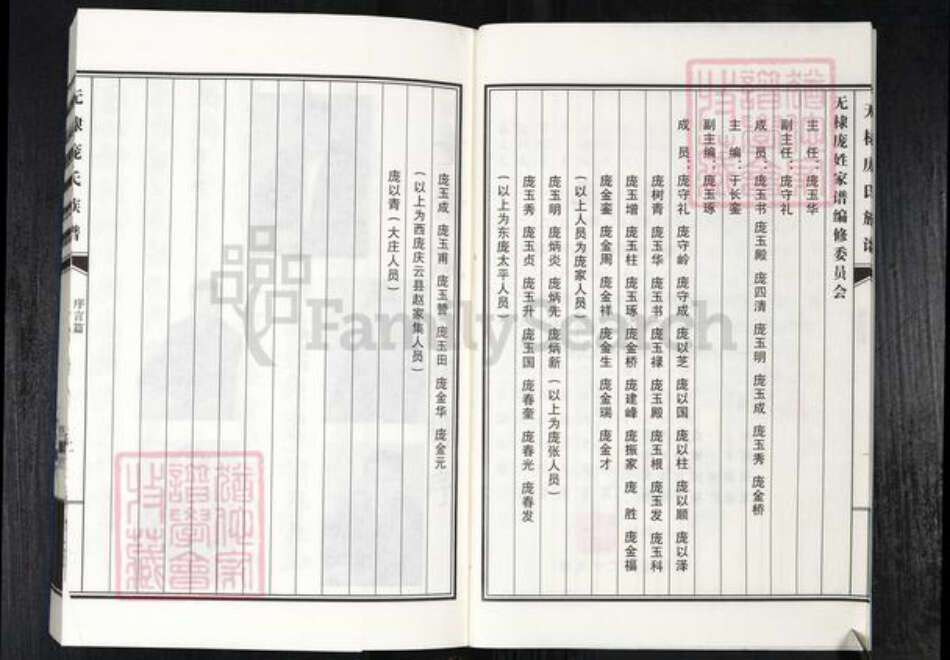 无棣庞氏族谱
无棣庞姓家谱编修委员会
主 任：庞玉华
副主任：庞守礼
成 员：庞玉书 庞玉殿 庞四清 庞玉明 庞玉成 庞玉秀 庞金桥
主 编：于长銮
副主编：庞玉琢
成 员：庞守礼 庞守岭 庞守成 庞以芝 庞以国 庞以柱 庞以顺 庞以泽
庞树青 庞玉华 庞玉书 庞玉禄 庞玉殿 庞玉根 庞玉发 庞玉科
庞玉增 庞玉柱 庞玉琢 庞金桥 庞建峰 庞振家 庞 胜 庞金福
庞金銮 庞金周 庞金祥 庞金生 庞金瑞 庞金才
（以上人员为庞家人员）
庞玉明 庞炳炎 庞炳先 庞炳新（以上为庞张人员）
庞玉秀 庞玉贞 庞玉升 庞玉国 庞春奎 庞春光 庞春发
（以上为东庞太平人员）
庞玉成 庞玉甫 庞玉赞 庞玉田 庞金华 庞金元
（以上为西庞庆云县赵家集人员）
庞以青（大庄人员）
无棣庞氏族谱
序言篇
FamilySearch